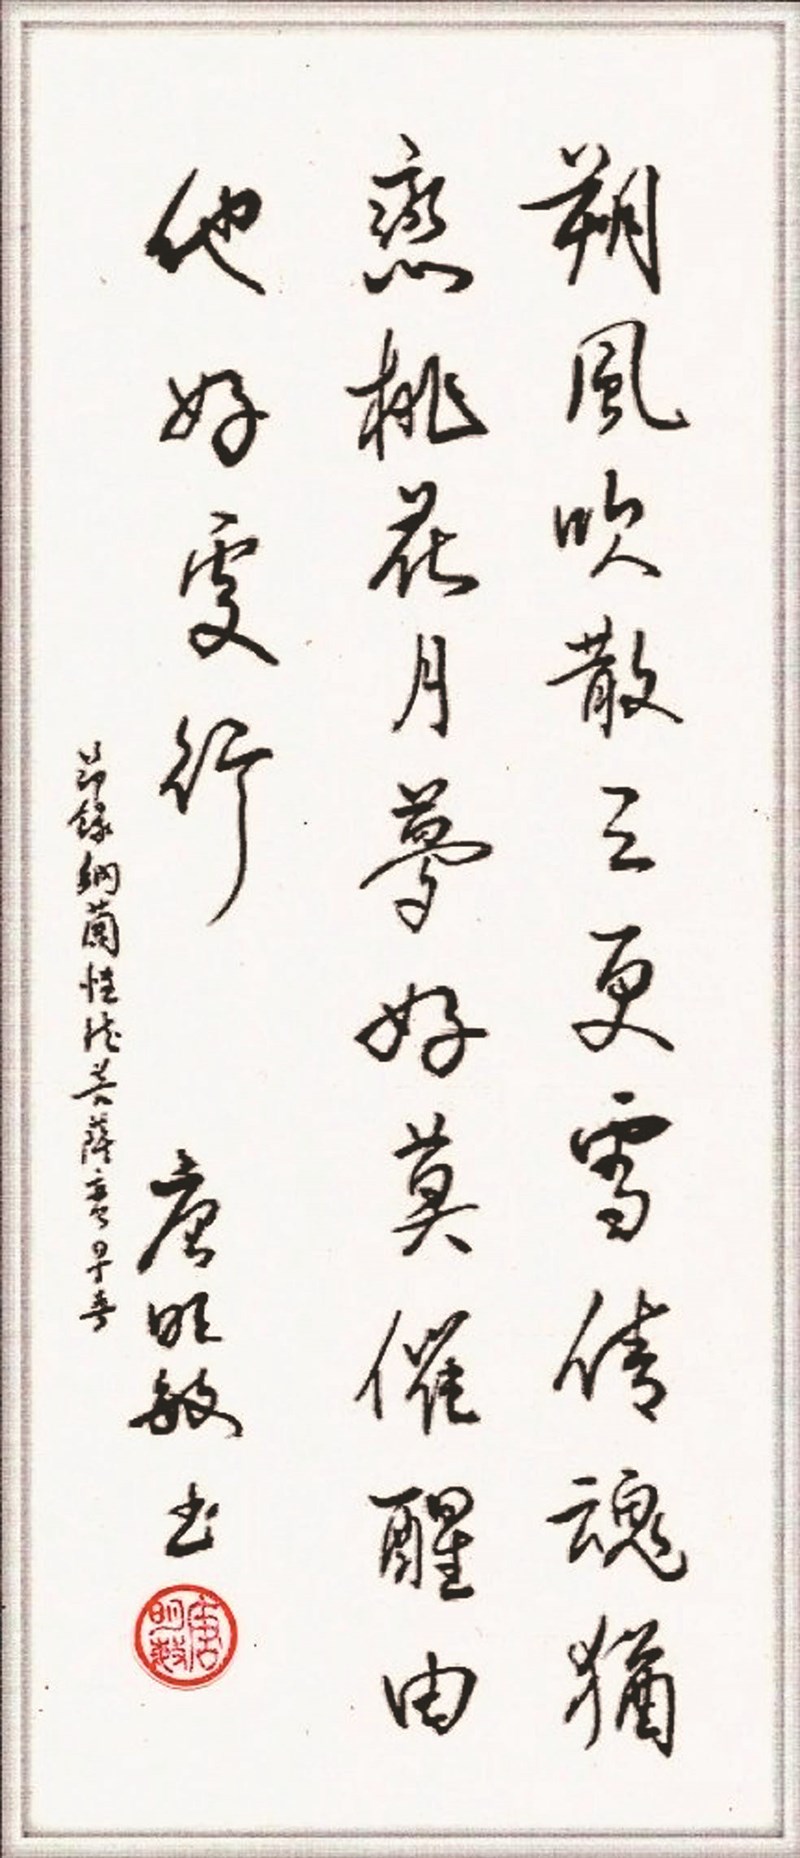 朔風吹散三更雪倩魂猶
戀桃花月夢好莫催醒由
他好處行
节錄納蘭性德菩薩蠻早春
唐明敏书
唐明敏